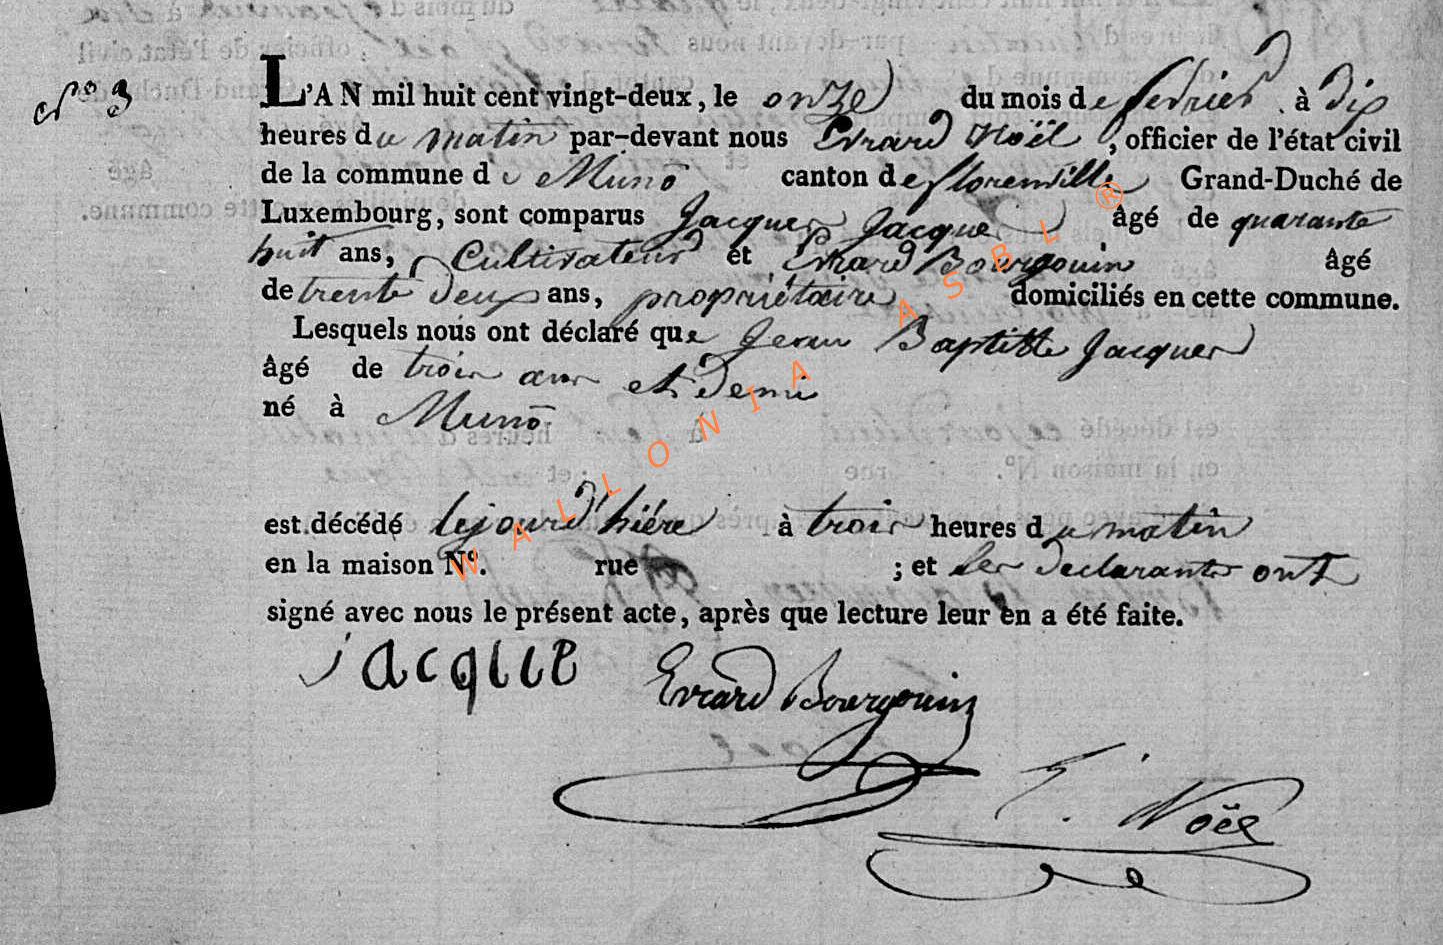 N° 3
L'AN mil huit cent vingt-deux, le onze du mois de fevrier à dix
heures du matin par-devant nous Evrard Noël, officier de l'état civil
de la commune de Muno canton de florenville Grand-Duché de
Luxembourg, sont comparus Jacques Jacque âgé de quarante
huit ans, Cultivateur et Evrard Bourgouin âgé
de trente deux ans, propriétaire domiciliés en cette commune.
Lesquels nous ont déclaré que Jean Baptiste Jacques
âgé de trois ans et demi
né à Muno
est décédé lejourd'hiére à trois heures du matin
en la maison N°. rue ; et les declarants ont
signé avec nous le présent acte, après que lecture leur en a été faite.
jacque Evrard Bourgouin
E. Noël
WALLONIA ASBL ®